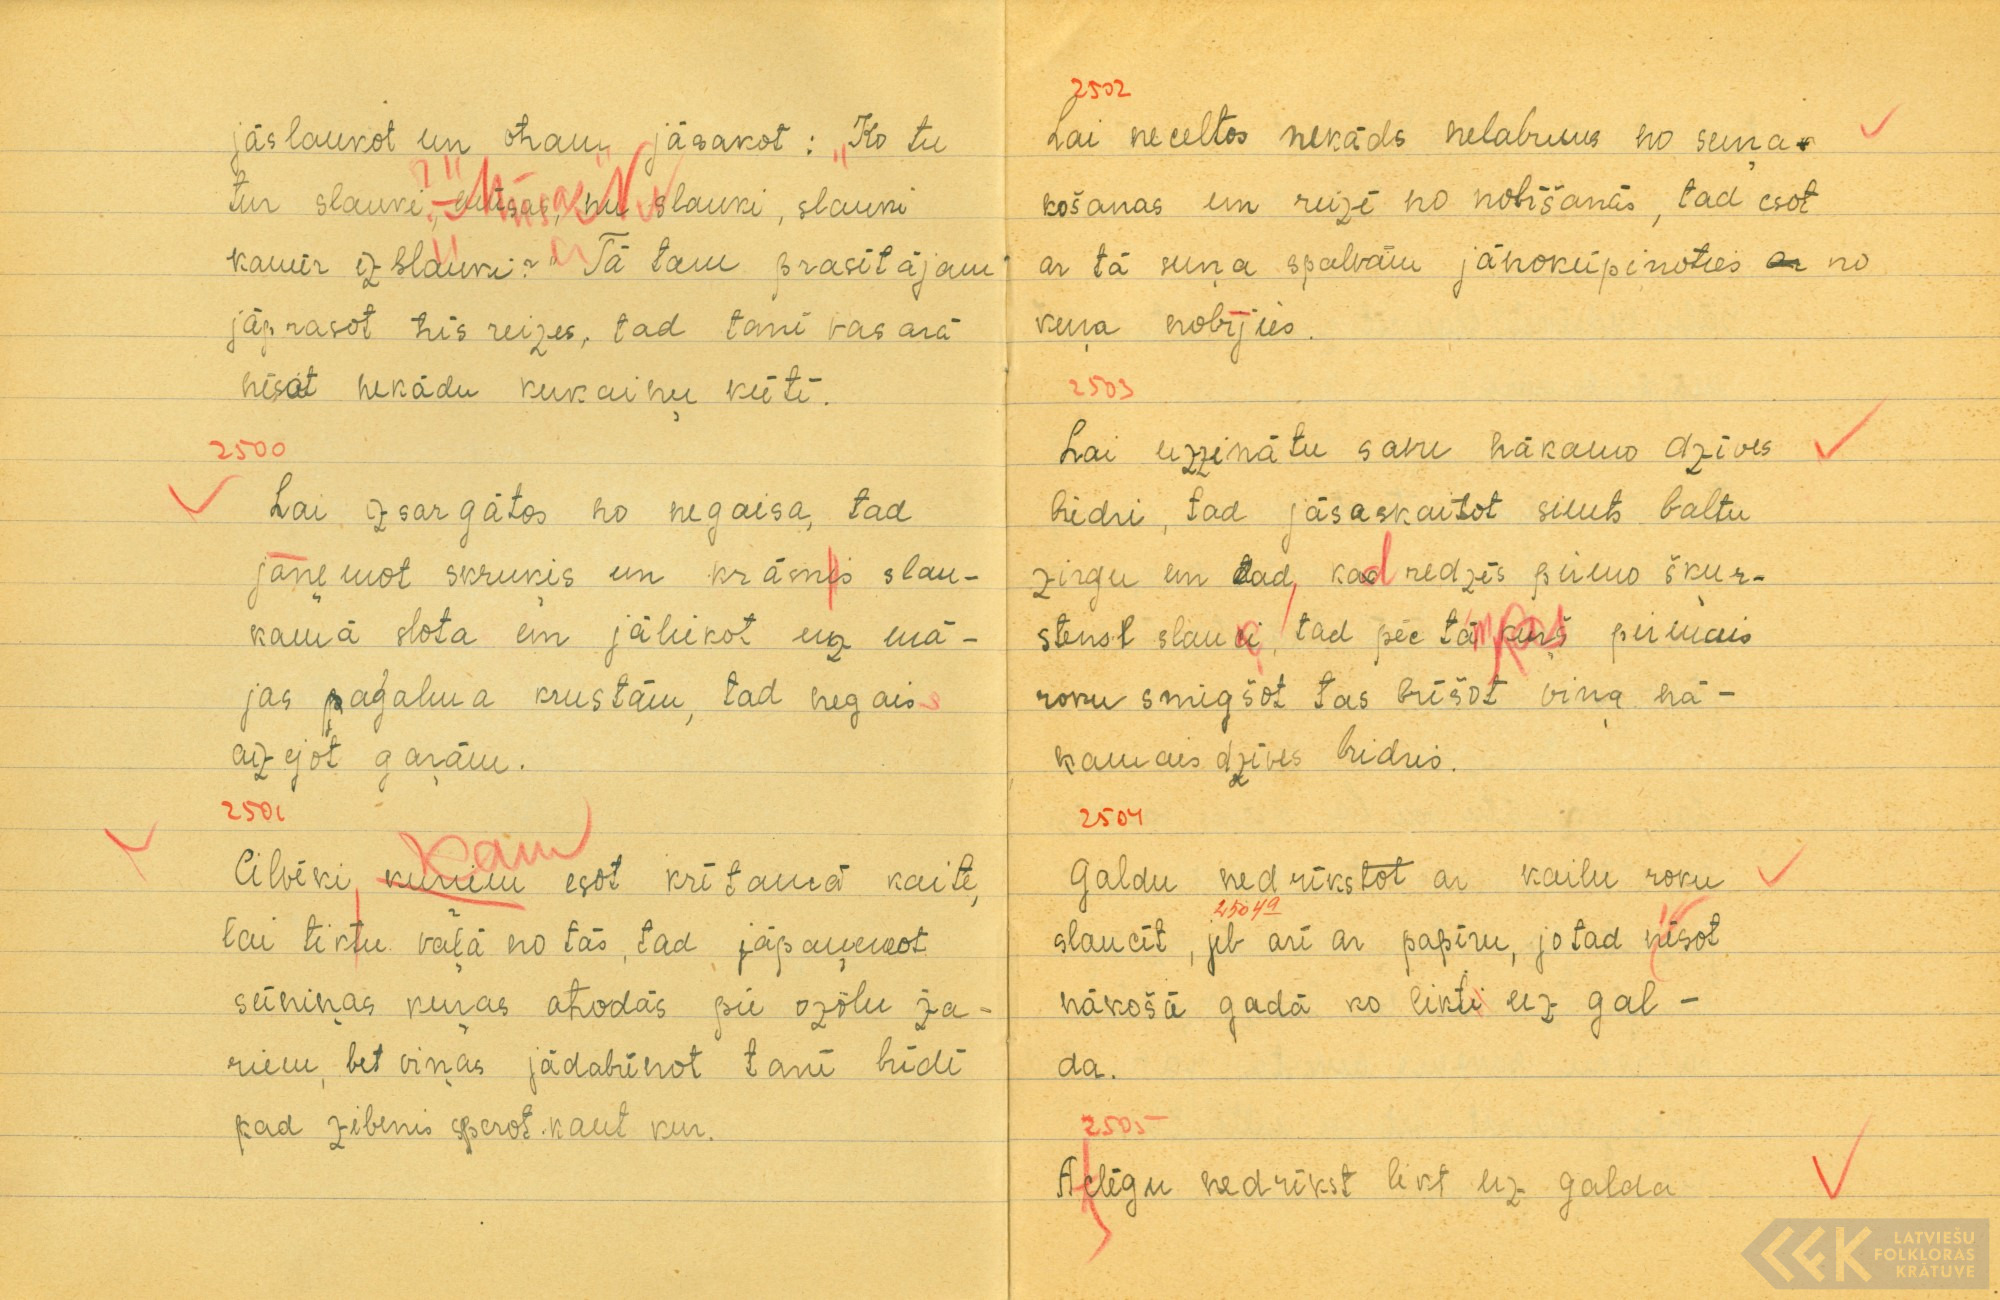 jāslaukot un otram jāsakot: „Ko tu
tur slauki?" – „Mūsas!" „Nu slauki, slauki
kamēr izslauki!" Tā tam prasītājam
jāprasot trīs reizes, tad tanī vasarā
nēsot nekādu kukaiņu kūtī.
2500
Lai izsargātos no negaisa, tad
jāņemot skruķis un krāsnis slau-
kamā slota un jāliekot uz mā-
jas pagalma krustām, tad negaiss
aizejot gaŗām.
2501
Cilvēki, kam esot krītamā kaite,
lai tiktu vaļā no tās, tad jāpaņemot
sēniņas kuŗas atrodās pie ozolu za-
riem, bet viņas jādabūnot tanī brīdī
kad zibenis sperot kaut kur.
2502
Lai neceltos nekāds nelabums no suņa
košanas un reizē no nobīšanās, tad esot
ar tā suņa spalvām jānokūpinoties no
kuŗa nobījies.
2503
Lai uzzinātu savu nākamo dzīves
biedri, tad jāsaskaitot simts baltu
zirgu un tad, kad redzēs pirmo šķur-
steņslauķi, tad pēc tam kas pirmais
roku sniegšot tas būšot viņa nā-
kamais dzīves biedris.
2504
Galdu nedrīkstot ar kailu roku
2504a
slaucīt, jeb arī ar papīru, jo tad nēsot
nākošā gadā ko likt uz gal-
da.
2505
Atslēgu nedrīkst likt uz galda
LATVIEŠU
FOLKLORAS
KRĀTUVE